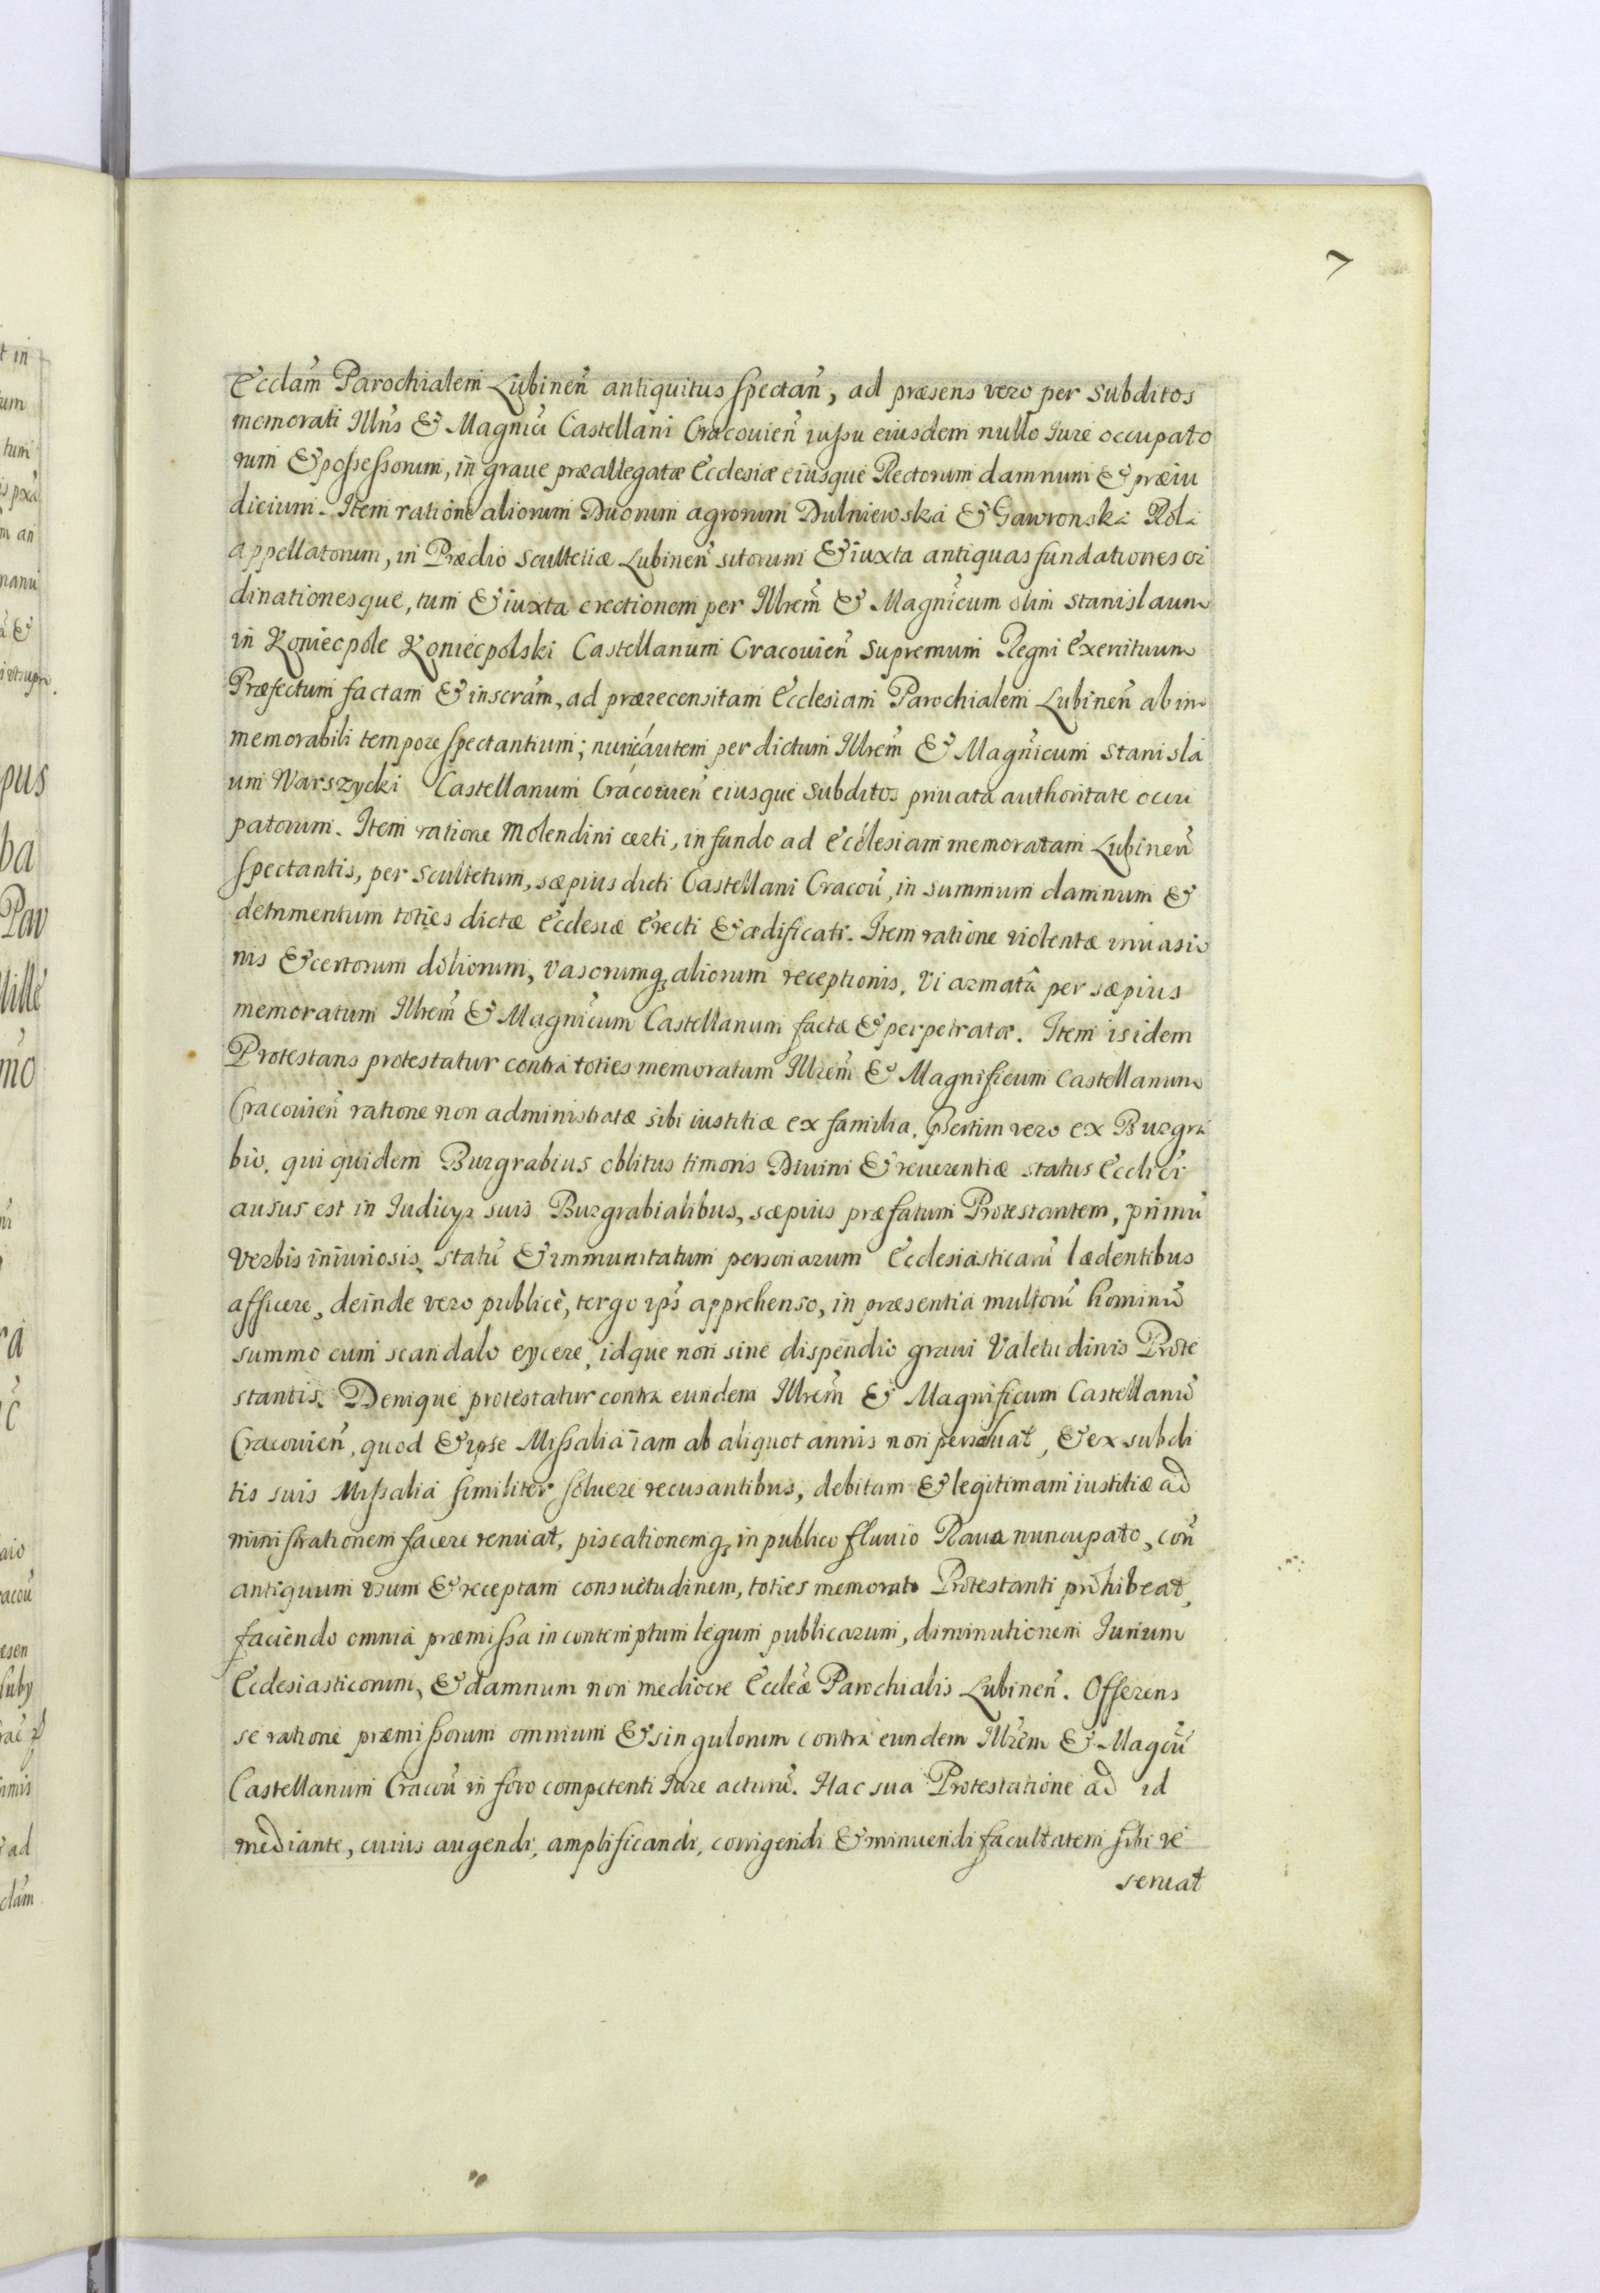 7
Ecclãm Parochialem Lubineñ antiquitus spectañ, ad præsens vero per subditos
memorati Illris & Magnici Castellani Cracouieñ iussu eiusdem nullo Iure occupato
rum & possessorum, in graue præallegatæ Ecclesiæ eiusque Rectorum damnum & præiu
dicium. Item ratione aliorum Duorum agrorum Dulniewska & Gawronska Rola
appellatorum, in Prædio Scultetiæ Lubineñ sitorum & iuxta antiquas fundationes or
dinationesque, tum & iuxta erectionem per Illrem̃ & Magnicum olim Stanislaum
in Koniecpole Koniecpolski Castellanum Cracouieñ Supremum Regni Exercituum
Præfectum factam & inseram̃, ad prærecensitam Ecclesiam Parochialem Lubineñ ab im
memorabili tempore spectantium; nunc autem per dictum Illrem̃ & Magnicum Stanisla
um Warszycki Castellanum Cracouieñ eiusque subditos priuata authoritate occu
patorum. Item ratione Molendini certi, in fundo ad Ecclesiam memoratam Lubineñ
spectantis, per Scultetum, sæpius dicti Castellani Cracoũ, in summum damnum &
detrimentum toties dictæ Ecclesiæ Erecti & ædificati. Item ratione violentæ inuasio
nis & certorum doliorum, vasorumq; aliorum receptionis, Vi armata per sæpius
memoratum Illrem̃ & Magnicum Castellanum factæ & perpetratæ. Item is idem
Protestans protestatur contra toties memoratum Illrem̃ & Magnificum Castellanum
Cracouieñ ratione non administratæ sibi iustitiæ ex familia, Pertim vero ex Burgra
bio, qui quidem Burgrabius oblitus timoris Diuini & reuerentiæ status Ecclici
ausus est in Iudicys suis Burgrabialibus, sæpius præfatum Protestantem, primũ
verbis iniuriosis, statũ & immunitatum personarum Ecclesiasticarũ lædentibus
afficere, deinde vero publicè, tergo ip̃s apprehenso, in præsentia multorũ hominũ
summo cum scandalo eycere, idque non sine dispendio graui Valetudinis Prote
stantis. Denique protestatur contra eundem Illrem̃ & Magnificum Castellanũ
Cracouieñ, quod & ipse Missalia iam ab aliquot annis non persoluat, & ex subdi
tis suis Missalia similiter soluere recusantibus, debitam & legitimam iustitiæ ad
ministrationem facere renuat, piscationemq; in publico fluuio Raua nuncupato, coñ
antiquum vsum & receptam consuetudinem, toties memorato Protestanti prohibeat,
faciendo omnia præmissa in contemptum legum publicarum, diminutionem Iurium
Ecclesiasticorum, & damnum non mediocre Eccleæ Parochialis Lubineñ. Offerens
se ratione præmissorum omnium & singulorum contra eundem Illrem̃ & Magcũ
Castellanum Cracoũ in foro competenti Iure acturũ. Hac sua Protestatione ad id
mediante, cuius augendi, amplificandi, corrigendi & minuendi facultatem sibi re
seruat